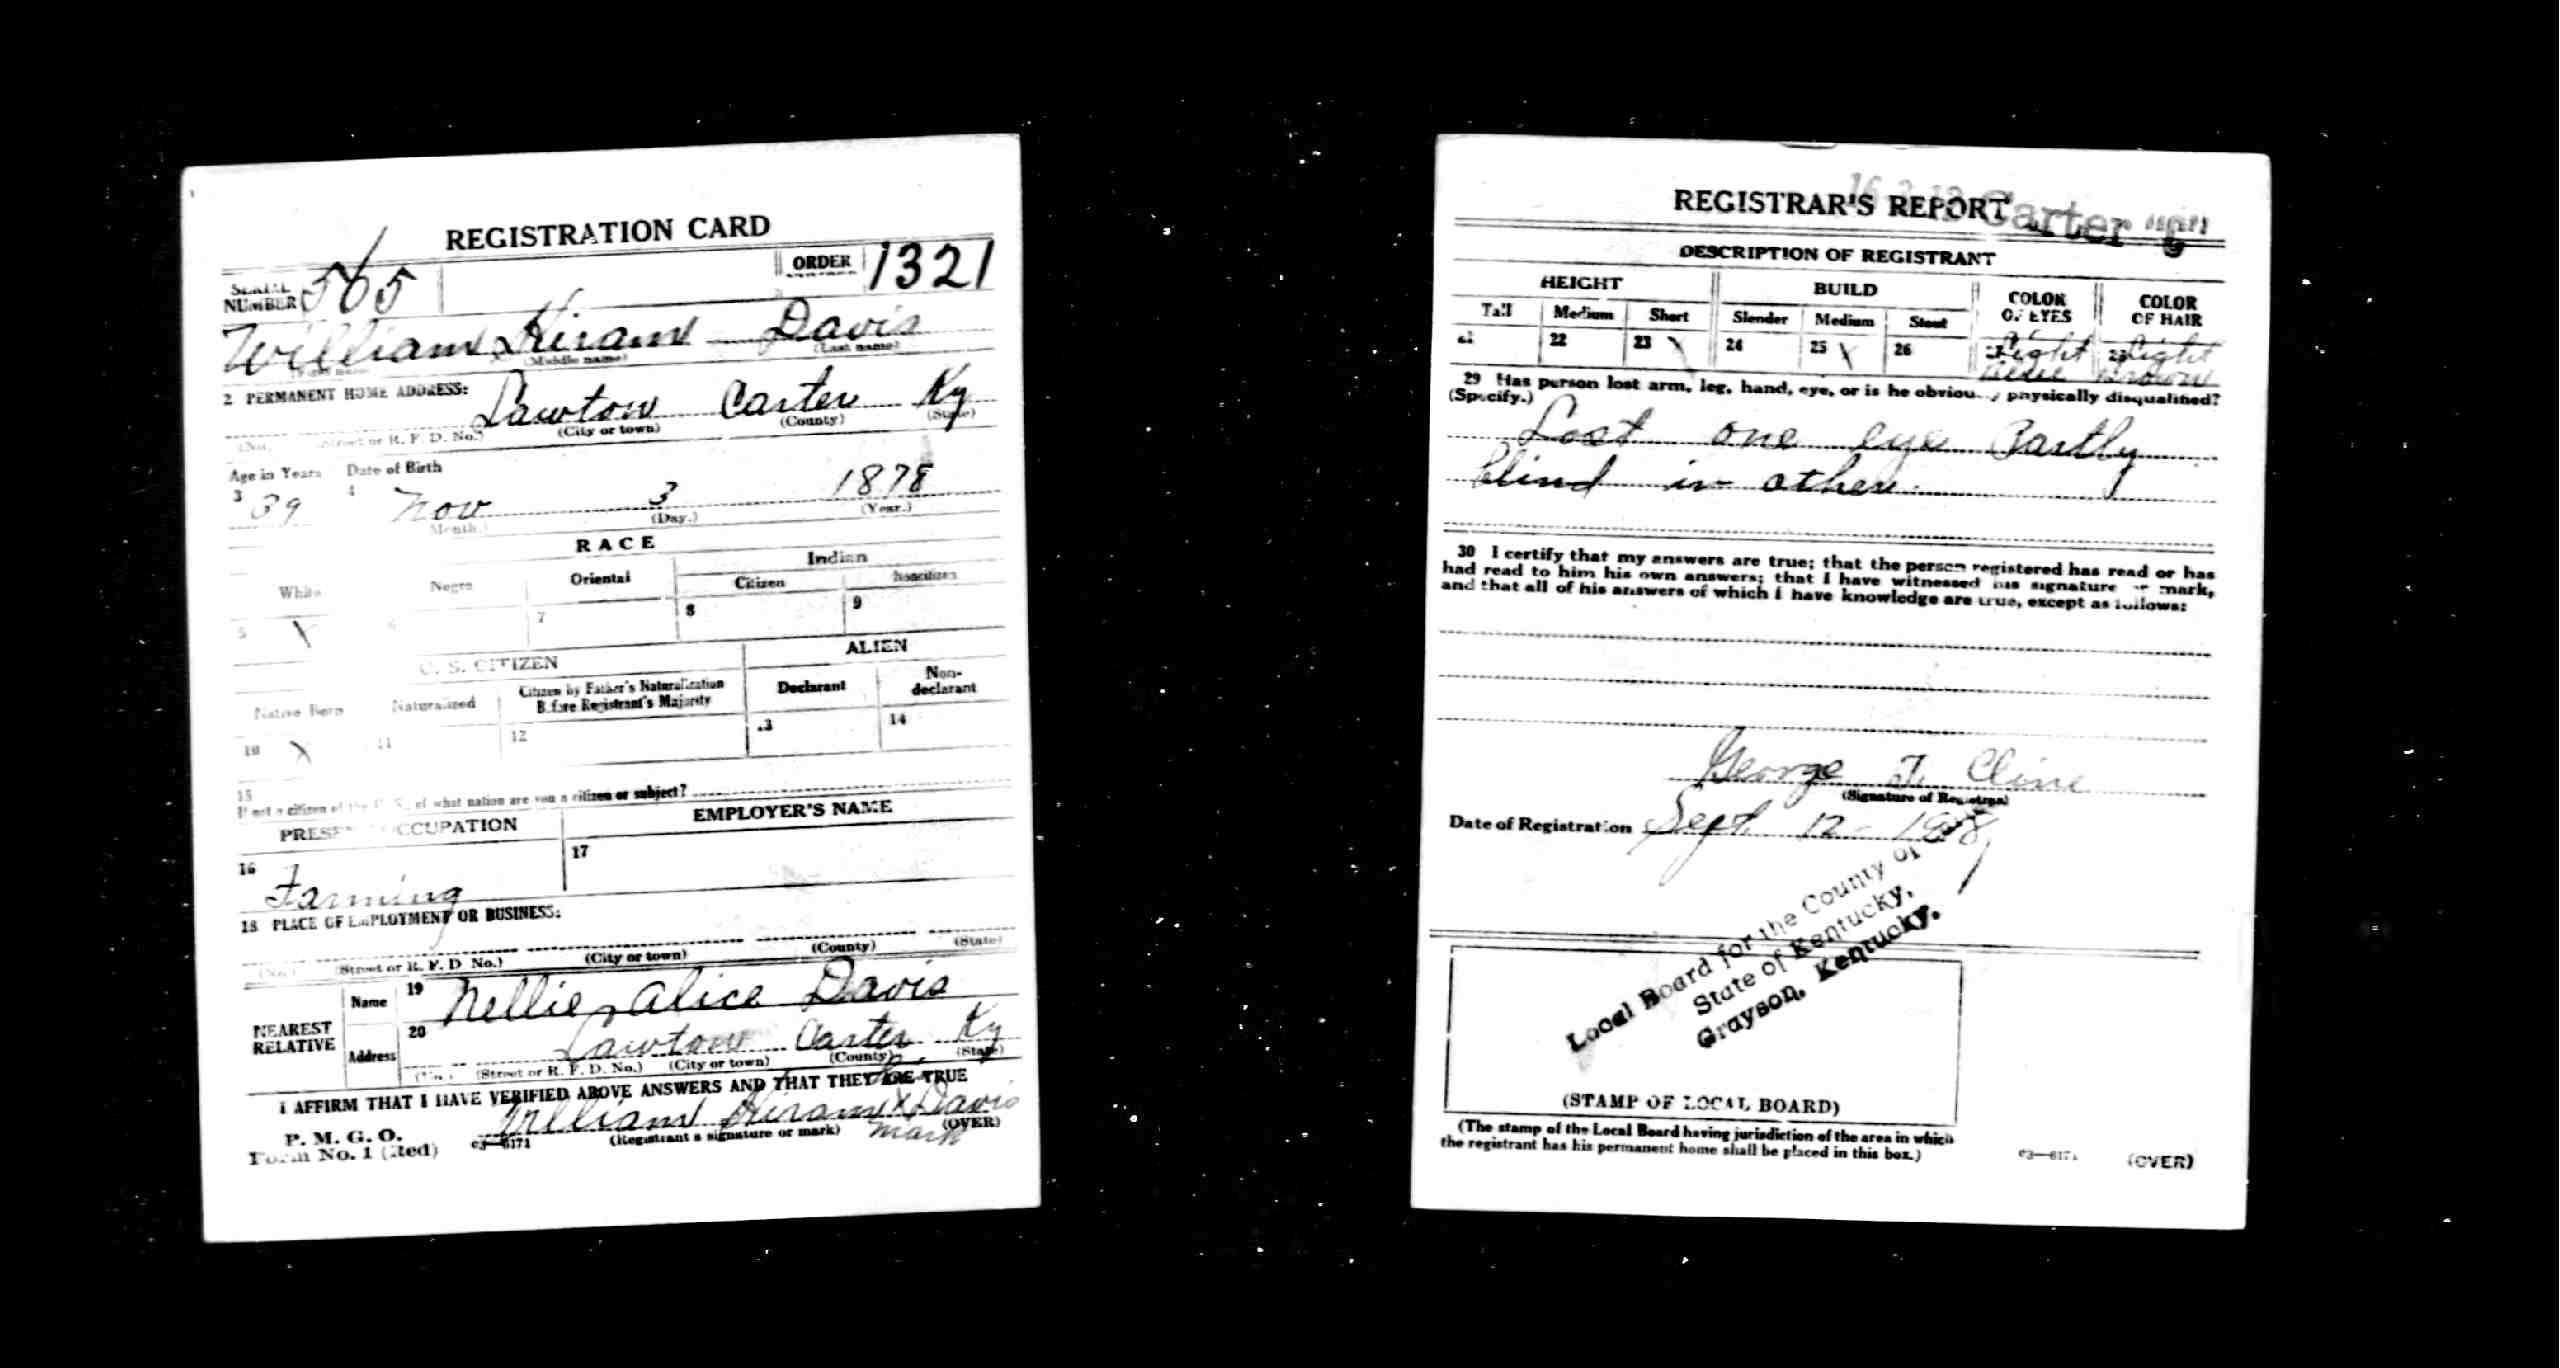 REGISTRATION CARD
SERIAL NUMBER 565 ORDER 1321
William Hiram Davis
(Middle name) (Last name)
2 PERMANENT HOME ADDRESS:
Lawton Carter Ky
(No.) (Street or R. F. D. No.) (City or town) (County) (State)
Age in Years Date of Birth
3 39 4 Nov 3 1878
(Month.) (Day.) (Year.)
RACE
White Negro Oriental Indian
Citizen Noncitizen
5 X 6 7 8 9
U. S. CITIZEN ALIEN
Native Born Naturalized Citizen by Father's Naturalization Before Registrant's Majority Declarant Non-declarant
10 X 11 12 13 14
15
If not a citizen of the U. S., of what nation are you a citizen or subject?
PRESENT OCCUPATION EMPLOYER'S NAME
16 Farming 17
18 PLACE OF EMPLOYMENT OR BUSINESS:
(No.) (Street or R. F. D. No.) (City or town) (County) (State)
NEAREST RELATIVE
Name 19 Nellie Alice Davis
Address 20 Lawton Carter Ky
(No.) (Street or R. F. D. No.) (City or town) (County) (State)
I AFFIRM THAT I HAVE VERIFIED ABOVE ANSWERS AND THAT THEY ARE TRUE
William Hiram X Davis
mark
P. M. G. O.
Form No. 1 (Red) c3—6171 (Registrant's signature or mark) (OVER)
REGISTRAR'S REPORT
Carter
DESCRIPTION OF REGISTRANT
HEIGHT BUILD COLOR OF EYES COLOR OF HAIR
Tall Medium Short Slender Medium Stout
21 22 23 X 24 25 X 26 27 Light Blue 28 Light Brown
29 Has person lost arm, leg, hand, eye, or is he obviously physically disqualified?
(Specify.)
Lost one eye Partly
blind in other
30 I certify that my answers are true; that the person registered has read or has
had read to him his own answers; that I have witnessed his signature or mark,
and that all of his answers of which I have knowledge are true, except as follows:
George T. Cline
(Signature of Registrar)
Date of Registration Sept. 12 - 1918
Local Board for the County of
State of Kentucky,
Grayson, Kentucky.
(STAMP OF LOCAL BOARD)
(The stamp of the Local Board having jurisdiction of the area in which
the registrant has his permanent home shall be placed in this box.)
c3—6171 (OVER)